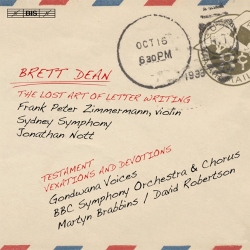 BIS
OCT 16
630PM
1935
BRETT DEAN
THE LOST ART OF LETTER WRITING
Frank Peter Zimmermann, violin
Sydney Symphony
Jonathan Nott
TESTAMENT
VEXATIONS AND DEVOTIONS
Gondwana Voices
BBC Symphony Orchestra & Chorus
Martyn Brabbins / David Robertson